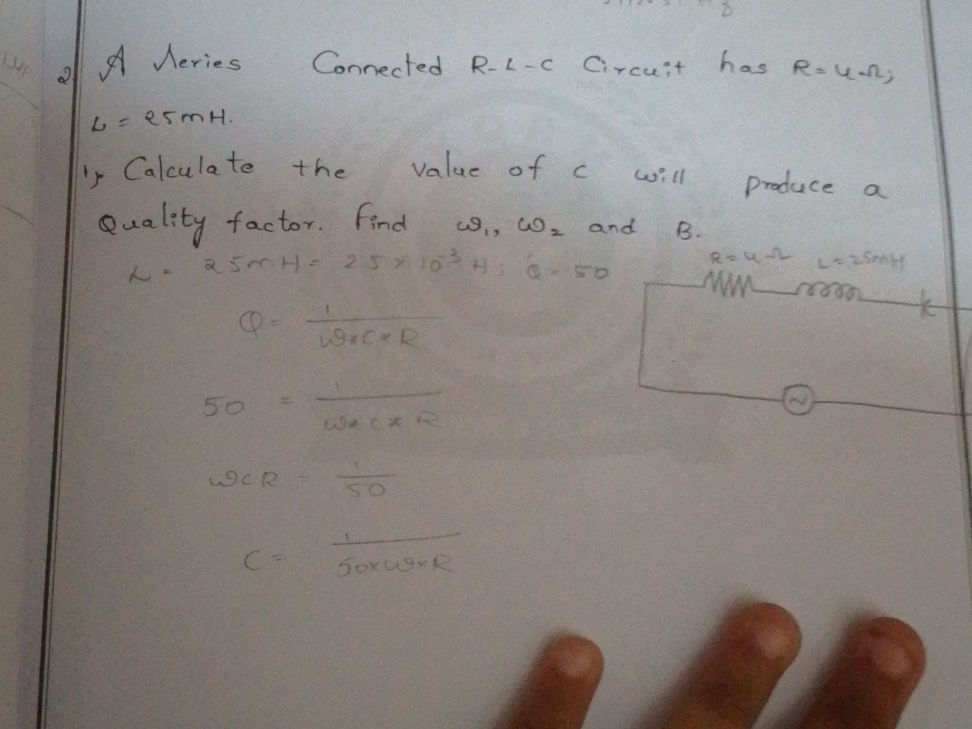 2) A series Connected R-L-C Circuit has R=4Ω;
L = 25mH.
1) Calculate the value of c will produce a
Quality factor. Find ω₁, ω₂ and B.
L = 25mH = 25×10⁻³ H; Q = 50
R=4Ω L=25mH
Q = 1/ω×C×R
50 = 1/ω×C×R
ωCR = 1/50
C = 1/50×ω×R